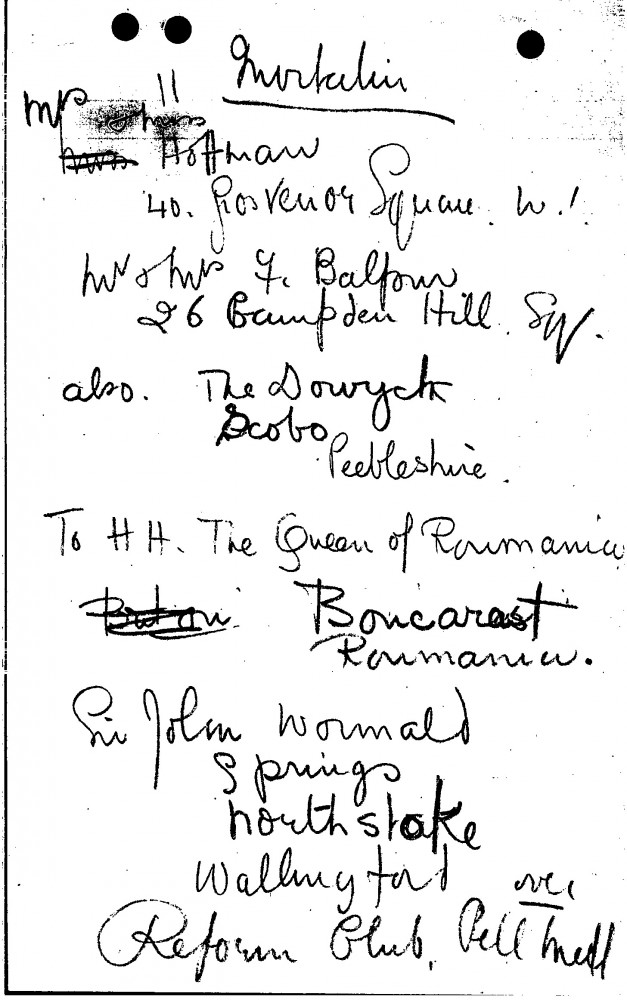 Invitation
Mrs "
Hoffman
40. Grosvenor Square. W.1.
Mr & Mrs F. Balfour
26 Campden Hill. Sq.
also. The Dowyck
Scobo
Peebleshire.
To H H. The Queen of Roumania
Boucarast
Roumania.
Sir John Wormald
Springs
North stoke
Wallingford
Reform Club, Pell Mell